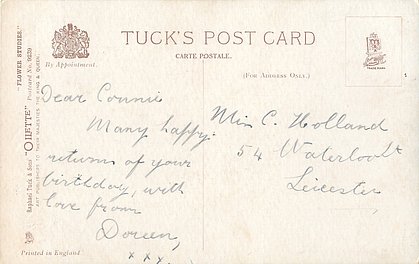 TUCK'S POST CARD
CARTE POSTALE.
By Appointment.
(FOR ADDRESS ONLY.)
TRADE MARK
"FLOWER STUDIES."
Raphael Tuck & Sons' "OILETTE" Postcard No.
ART PUBLISHERS TO THEIR MAJESTIES THE KING & QUEEN.
Dear Connie
Many happy
returns of your
birthday, with
love from
Doreen,
x x x.
Miss C. Holland
54 Waterloo
Leicester
Printed in England.